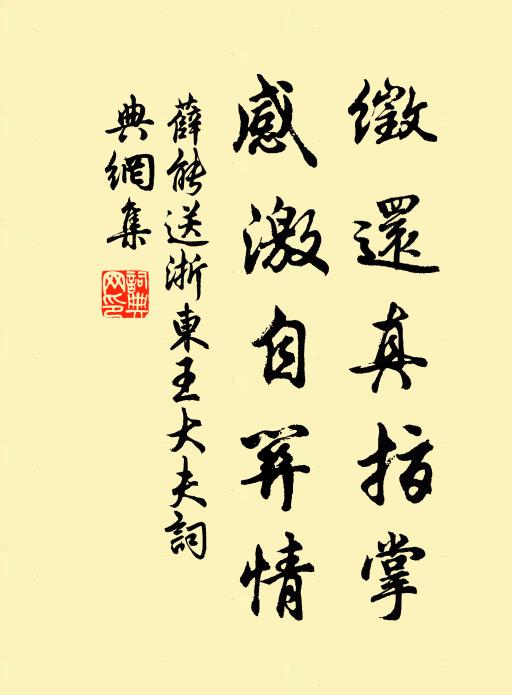 徵還真指掌
感激自關情
薛能送浙東王大夫詞
典網集
詞典
网印